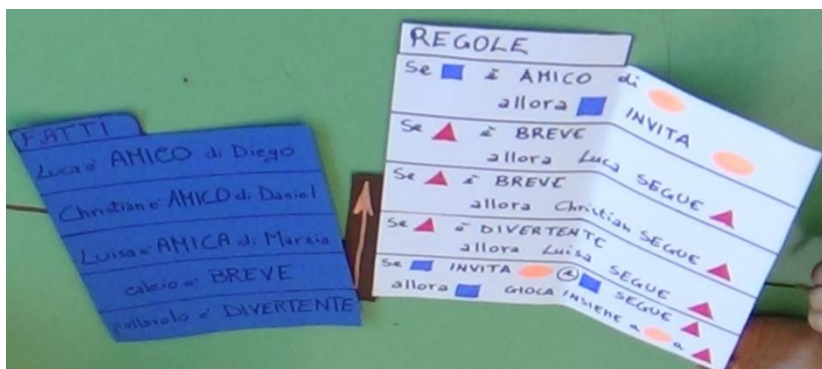 FATTI
Luca è AMICO di Diego
Christian è AMICO di Daniel
Luisa è AMICA di Marzia
calcio è BREVE
pallavolo è DIVERTENTE
REGOLE
Se è AMICO di
allora INVITA
Se è BREVE
allora Luca SEGUE
Se è BREVE
allora Christian SEGUE
Se è DIVERTENTE
allora Luisa SEGUE
Se INVITA e SEGUE
allora GIOCA INSIEME a a